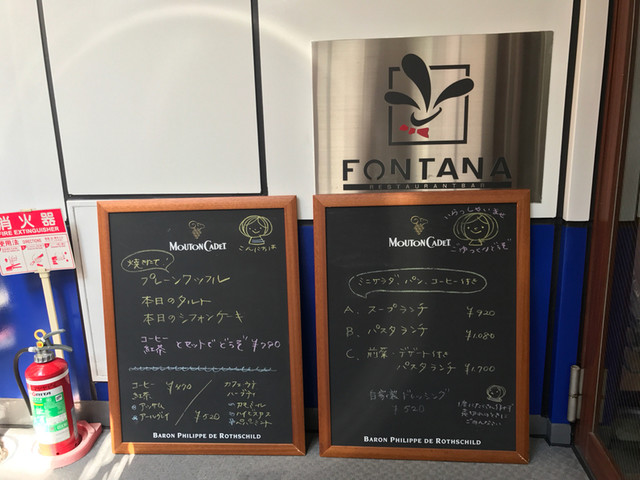 FONTANA
RESTAURANTBAR
消火器
FIRE EXTINGUISHER
使用法
DIRECTIONS
MOUTON CADET
こんにちは
焼きたて!
プレーンワッフル
本日のタルト
本日のシフォンケーキ
コーヒー
紅茶
とセットでどうぞ ¥780
コーヒー ¥470
紅茶
アッサム
アールグレイ
¥520
カフェ
ハーブティ
カモミール
ハイビスカス
BARON PHILIPPE DE ROTHSCHILD
いらっしゃいませ
MOUTON CADET
ごゆっくりどうぞ
ミニサラダ、パン、コーヒー付き
A. スープランチ ¥920
B. パスタランチ ¥1,080
C. 前菜・デザート付き
パスタランチ ¥1,700
自家製ドレッシング
¥520
BARON PHILIPPE DE ROTHSCHILD